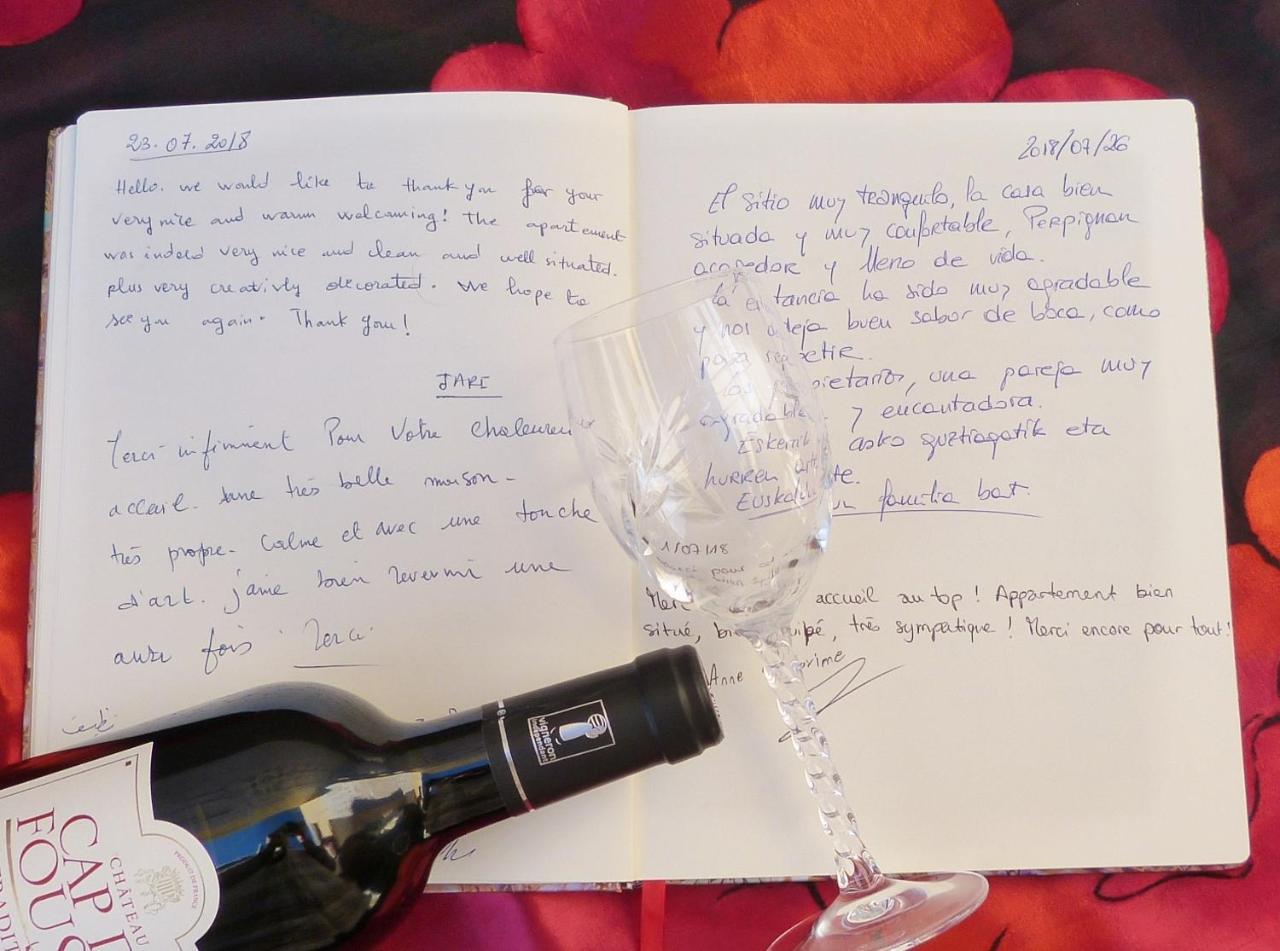 23.07.2018
Hello. we would like to thank you for your
very nice and warm welcoming! the apartement
was indeed very nice and clean and well situated.
plus very creativly decorated. We hope to
see you again. Thank you!
JARI
Merci infiniment Pour Votre Chaleureux
accueil. Une très belle maison.
très propre. Calme et avec une touche
d'art. j'aime bien revenir une
autre fois. Merci
2018/07/26
El sitio muy tranquilo, la casa bien
situada y muy confortable, Perpignan
acogedor y lleno de vida.
la estancia ha sido muy agradable
y nos deja buen sabor de boca, como
para repetir.
los propietarios, una pareja muy
agradable y encantadora.
Eskerrik asko guztiagatik eta
hurren arte.
Euskal familia bat.
1/07/18
Merci accueil au top! Appartement bien
situé, bien équipé, très sympatique! Merci encore pour tout!
Anne
vigneron
indépendant
CHÂTEAU
CAP
FOUS
TRADIT